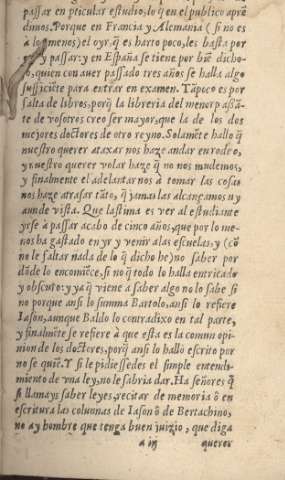 passar en pticular estudio, lo q̃ en el publico aprẽ
dimos. Porque en Francia y Alemania ( si no es
à lo menos) el oyr, q̃ es harto poco, les basta por
oyr y passar: y en España se tiene por biẽ dicho-
so, quien con auer passado tres años se halla algo
sufficiẽte para entrar en examen. Tãpoco es por
falta de libros, porq̃ la libreria del menor passãn-
te de vosotros creo ser mayor, que la de los dos
mejores doctores de otro reyno. Solamẽte hallo q̃
nuestro querer ataxar nos haze andar en rodeo,
y nuestro querer volar haze q̃ no nos mudemos,
y finalmente el adelantar nos à tomar las cosas
nos haze atrasar tãto, q̃ jamas las alcançamos ny
aun de vista. Que lastima es ver al estudiante
yrse à passar acabo de cinco años, que por lo me-
nos ha gastado en yr y venir alas escuelas, y (cõ
no le faltar nada de lo q̃ dicho he) no saber por
dõde lo encomiẽce, si no q̃ todo lo halla entricado
y obscuro: y ya q̃ viene a saber algo no lo sabe si
no porque ansi lo summa Bartolo, ansi lo refiere
Iason, aunque Baldo lo contradixo en tal parte,
y finalmẽte se refiere à que esta es la comun opi-
nion de los doctores, porq̃ ansi lo hallò escrito por
no se quiẽ. Y si le pidiessedes el simple entendi-
miento de vna ley, no le sabria dar. Ha señores q̃
si llamays saber leyes, recitar de memoria ò en
escritura las colunnas de Iason ò de Bertachino,
no ay hombre que tenga buen juizio, que diga
a iij querer